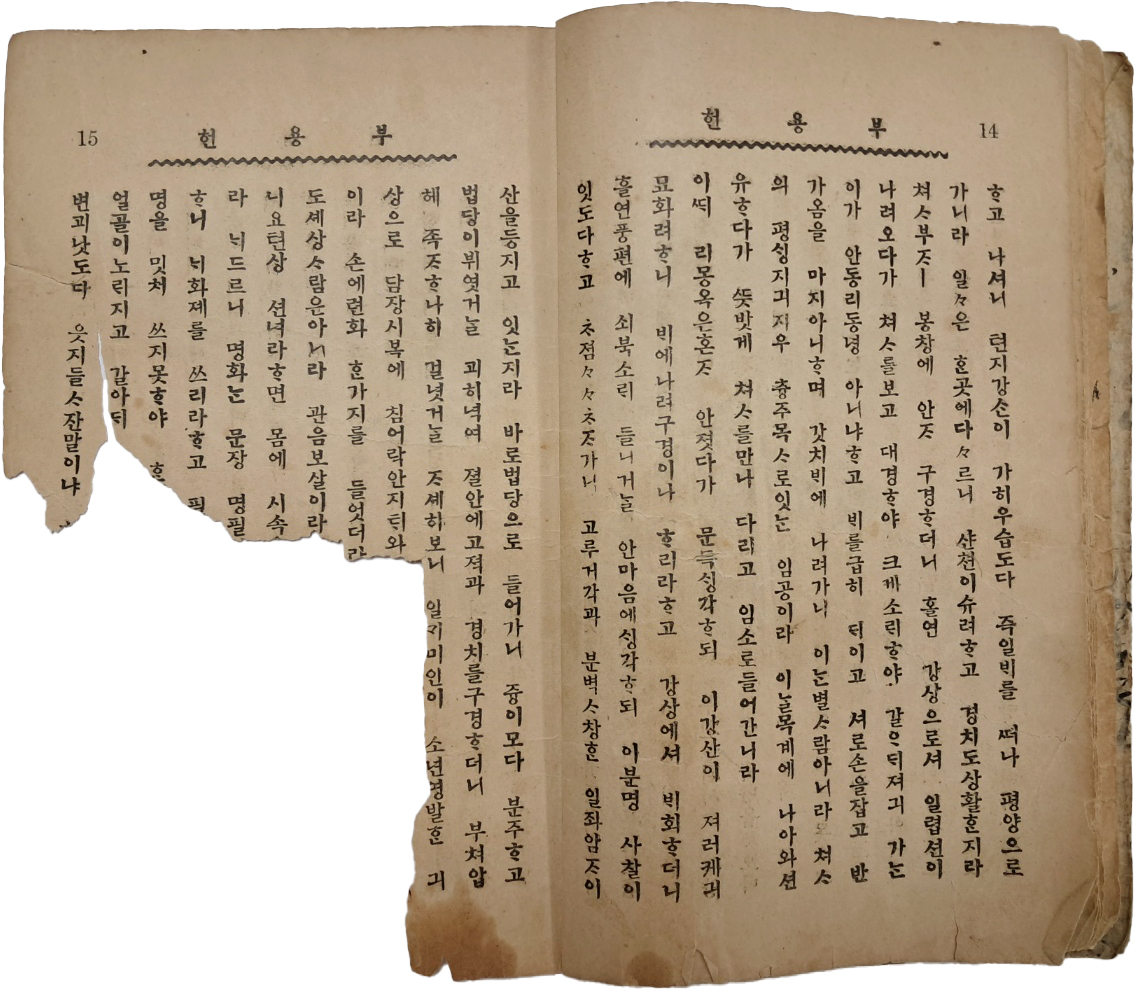 14
부용헌
ᄒᆞ고 나셔니 텬지강ᄉᆞᆫ이 가히우습도다 즉일ᄇᆡ를 ᄯᅥ나 평양으로
가니라 일々은 ᄒᆞᆫ곳에다々르니 샨쳔이슈려ᄒᆞ고 경치도상활ᄒᆞᆫ지라
쳐ᄉᆞ부ᄌᆞㅣ 봉창에 안ᄌᆞ 구경ᄒᆞ더니 홀연 강상으로셔 일렵션이
나려오다가 쳐ᄉᆞ를보고 대경ᄒᆞ야 크게소ᄅᆡᄒᆞ야 갈ᄋᆞᄃᆡ져긔 가ᄂᆞᆫ
이가 안동리동녕 아니냐ᄒᆞ고 ᄇᆡ를급히 ᄃᆡ이고 셔로손을잡고 반
가옴을 마지아니ᄒᆞ며 갓치ᄇᆡ에 나려가니 이ᄂᆞᆫ별ᄉᆞ람아니라 쳐ᄉᆞ
의 평ᄉᆡᆼ지긔지우 츙주목ᄉᆞ로잇ᄂᆞᆫ 임공이라 이ᄂᆞᆯ목계에 나아와션
유ᄒᆞ다가 ᄯᅳᆺ밧게 쳐ᄉᆞ를만나 다리고 임소로들어간니라
이ᄯᅢ 리몽옥은혼ᄌᆞ 안졋다가 문득ᄉᆡᆼ각ᄒᆞ되 이강산이 져러케긔
묘화려ᄒᆞ니 ᄇᆡ에나려구경이나 ᄒᆞ리라ᄒᆞ고 강상에셔 ᄇᆡ회ᄒᆞ더니
흘연풍편에 쇠북소ᄅᆡ 들니거ᄂᆞᆯ 안마음에ᄉᆡᆼ각ᄒᆞ되 이분명 사찰이
잇도다ᄒᆞ고 ᄎᆞ졈々々ᄎᆞᄌᆞ가니 고루거각과 분벽ᄉᆞ창ᄒᆞᆫ 일좌암ᄌᆞ이
15
부용헌
산을등지고 잇ᄂᆞᆫ지라 바로법당으로 들어가니 즁이모다 분주ᄒᆞ고
법당이뷔엿거ᄂᆞᆯ 괴히녁여 졀안에고젹과 경치를구경ᄒᆞ더니 부쳐압
헤 족ᄌᆞᄒᆞ나히 걸녓거ᄂᆞᆯ ᄌᆞ셰히보니 일ᄀᆡ미인이 소년영발ᄒᆞᆫ 긔
상으로 담장시복에 침어락안지ᄐᆡ와
이라 손에련화 ᄒᆞᆫ가지를 들엇더라
도셰상ᄉᆞ람은아니라 관음보살이라
니요텬상 션녀라ᄒᆞ면 몸에 시속
라 ᄂᆡ드르니 명화ᄂᆞᆫ 문장 명필
ᄒᆞ니 ᄂᆡ화졔를 쓰리라ᄒᆞ고 픽
명을 밋쳐 쓰지못ᄒᆞ야
얼골이노ᄅᆡ지고 갈아ᄃᆡ
변괴낫도다 읏지들ᄉᆞ잔말이냐